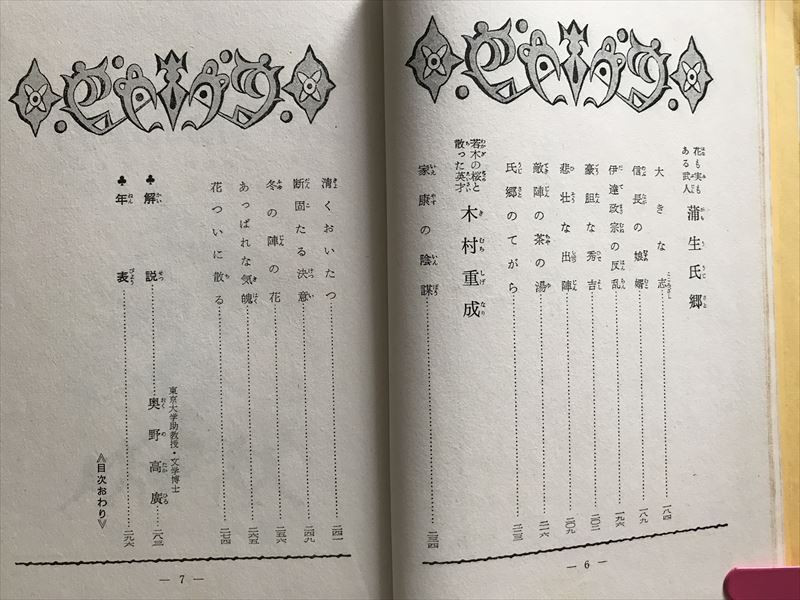 花も実も
ある武人
蒲生氏郷
大きな志 一八四
信長の娘婿 一八九
伊達政宗の反乱 一九六
豪胆な秀吉 二〇二
悲壮な出陣 二〇九
敵陣の茶の湯 二一六
氏郷のてがら 二二三
若木の桜と
散った英才
木村重成
家康の陰謀 二三四
— 6 —
清くおいたつ 二四一
断固たる決意 二四九
冬の陣の花 二五六
あっぱれな気魄 二六五
花ついに散る 二七四
♣解説
東京大学助教授・文学博士
奥野高廣 二八三
♣年表 二九六
≪目次おわり≫
— 7 —